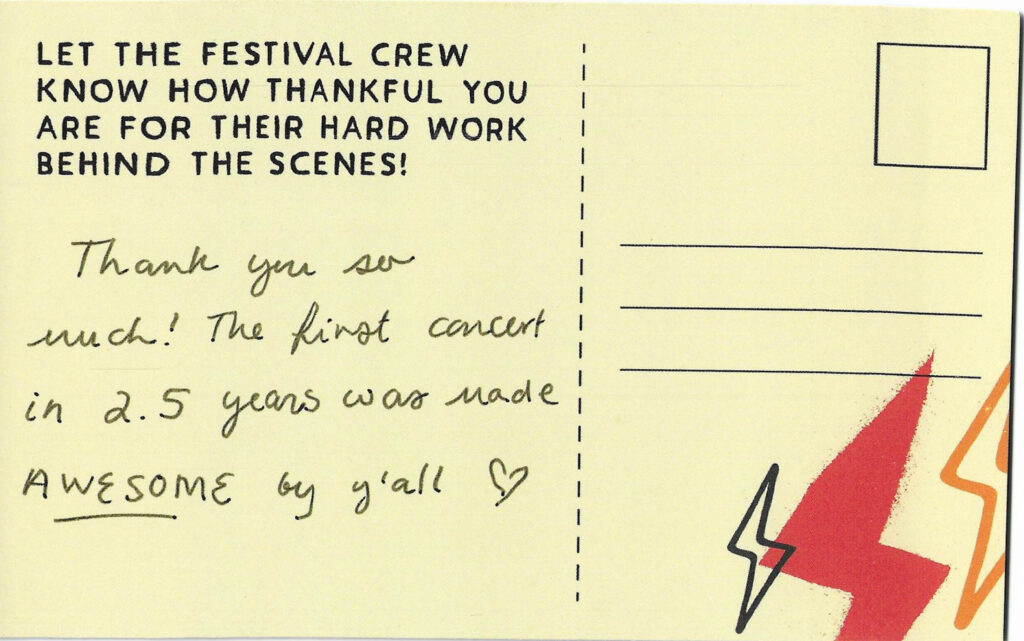 LET THE FESTIVAL CREW
KNOW HOW THANKFUL YOU
ARE FOR THEIR HARD WORK
BEHIND THE SCENES!
Thank you so
much! The first concert
in 2.5 years was made
AWESOME by y'all ♡